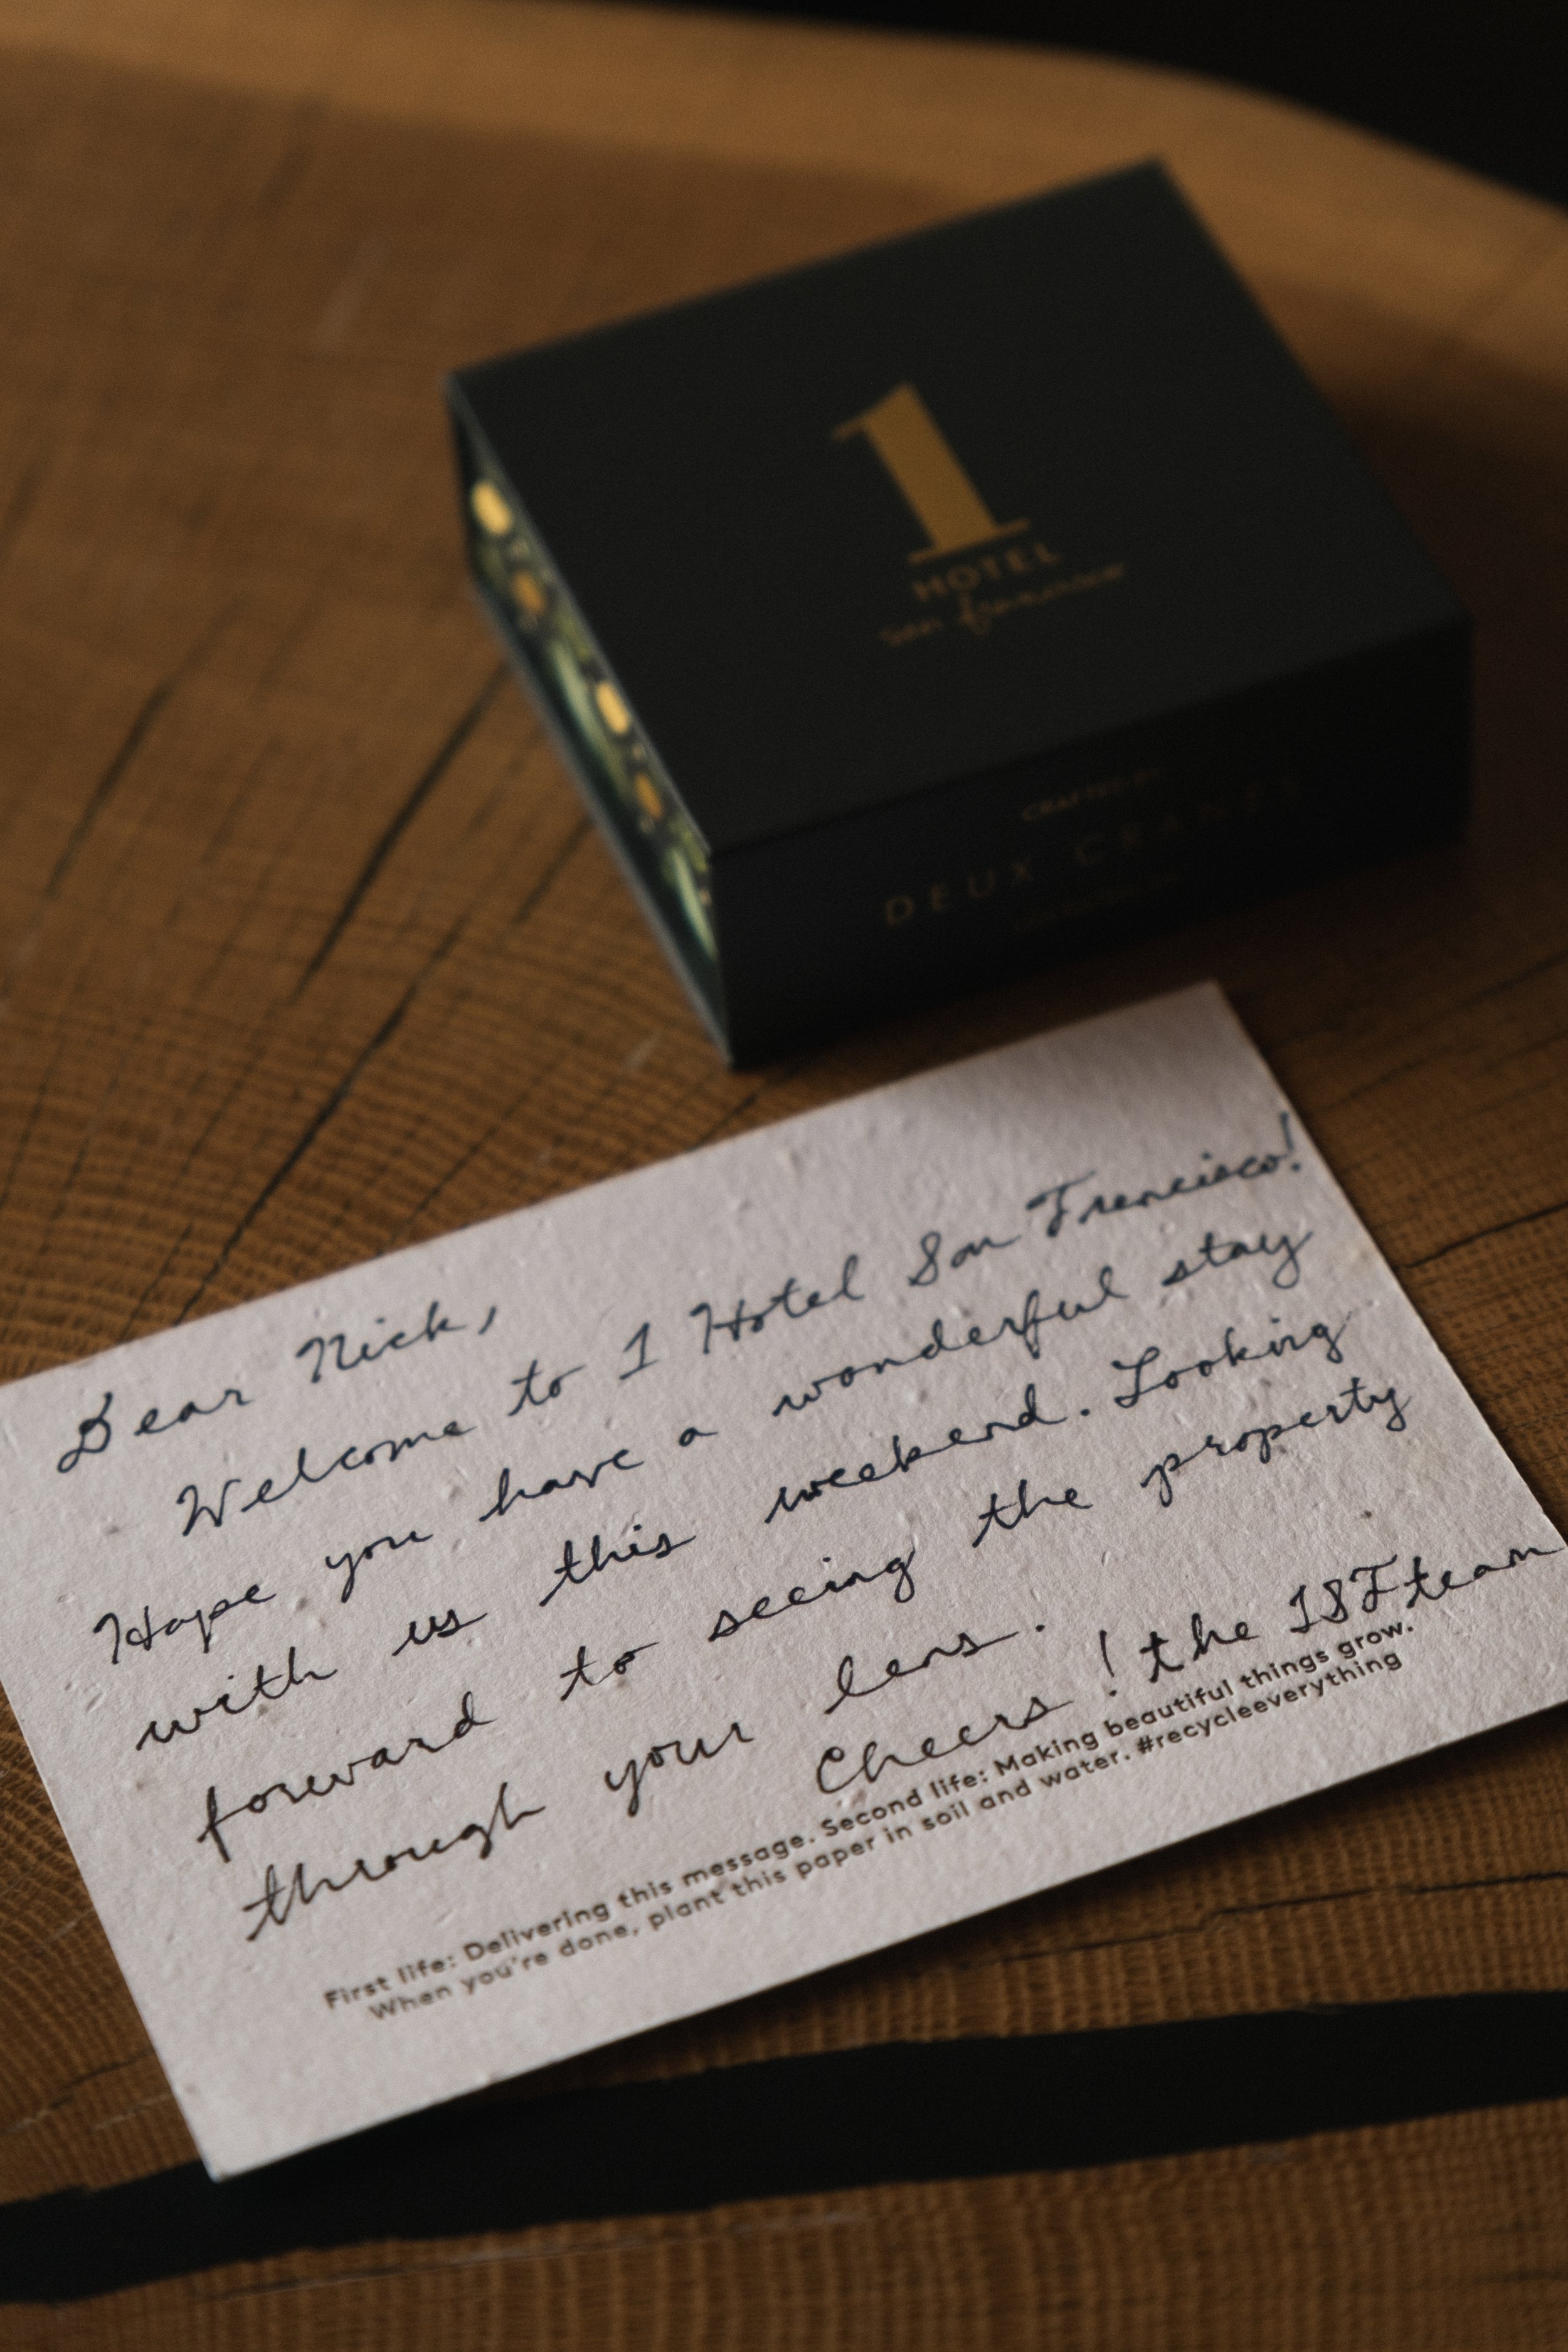 1
HOTEL
san francisco
CRAFTED BY
DEUX CRANES
Dear Nick,
Welcome to 1 Hotel San Francisco!
Hope you have a wonderful stay
with us this weekend. Looking
forward to seeing the property
through your lens.
Cheers! the 1SF team
First life: Delivering this message. Second life: Making beautiful things grow.
When you're done, plant this paper in soil and water. #recycleeverything